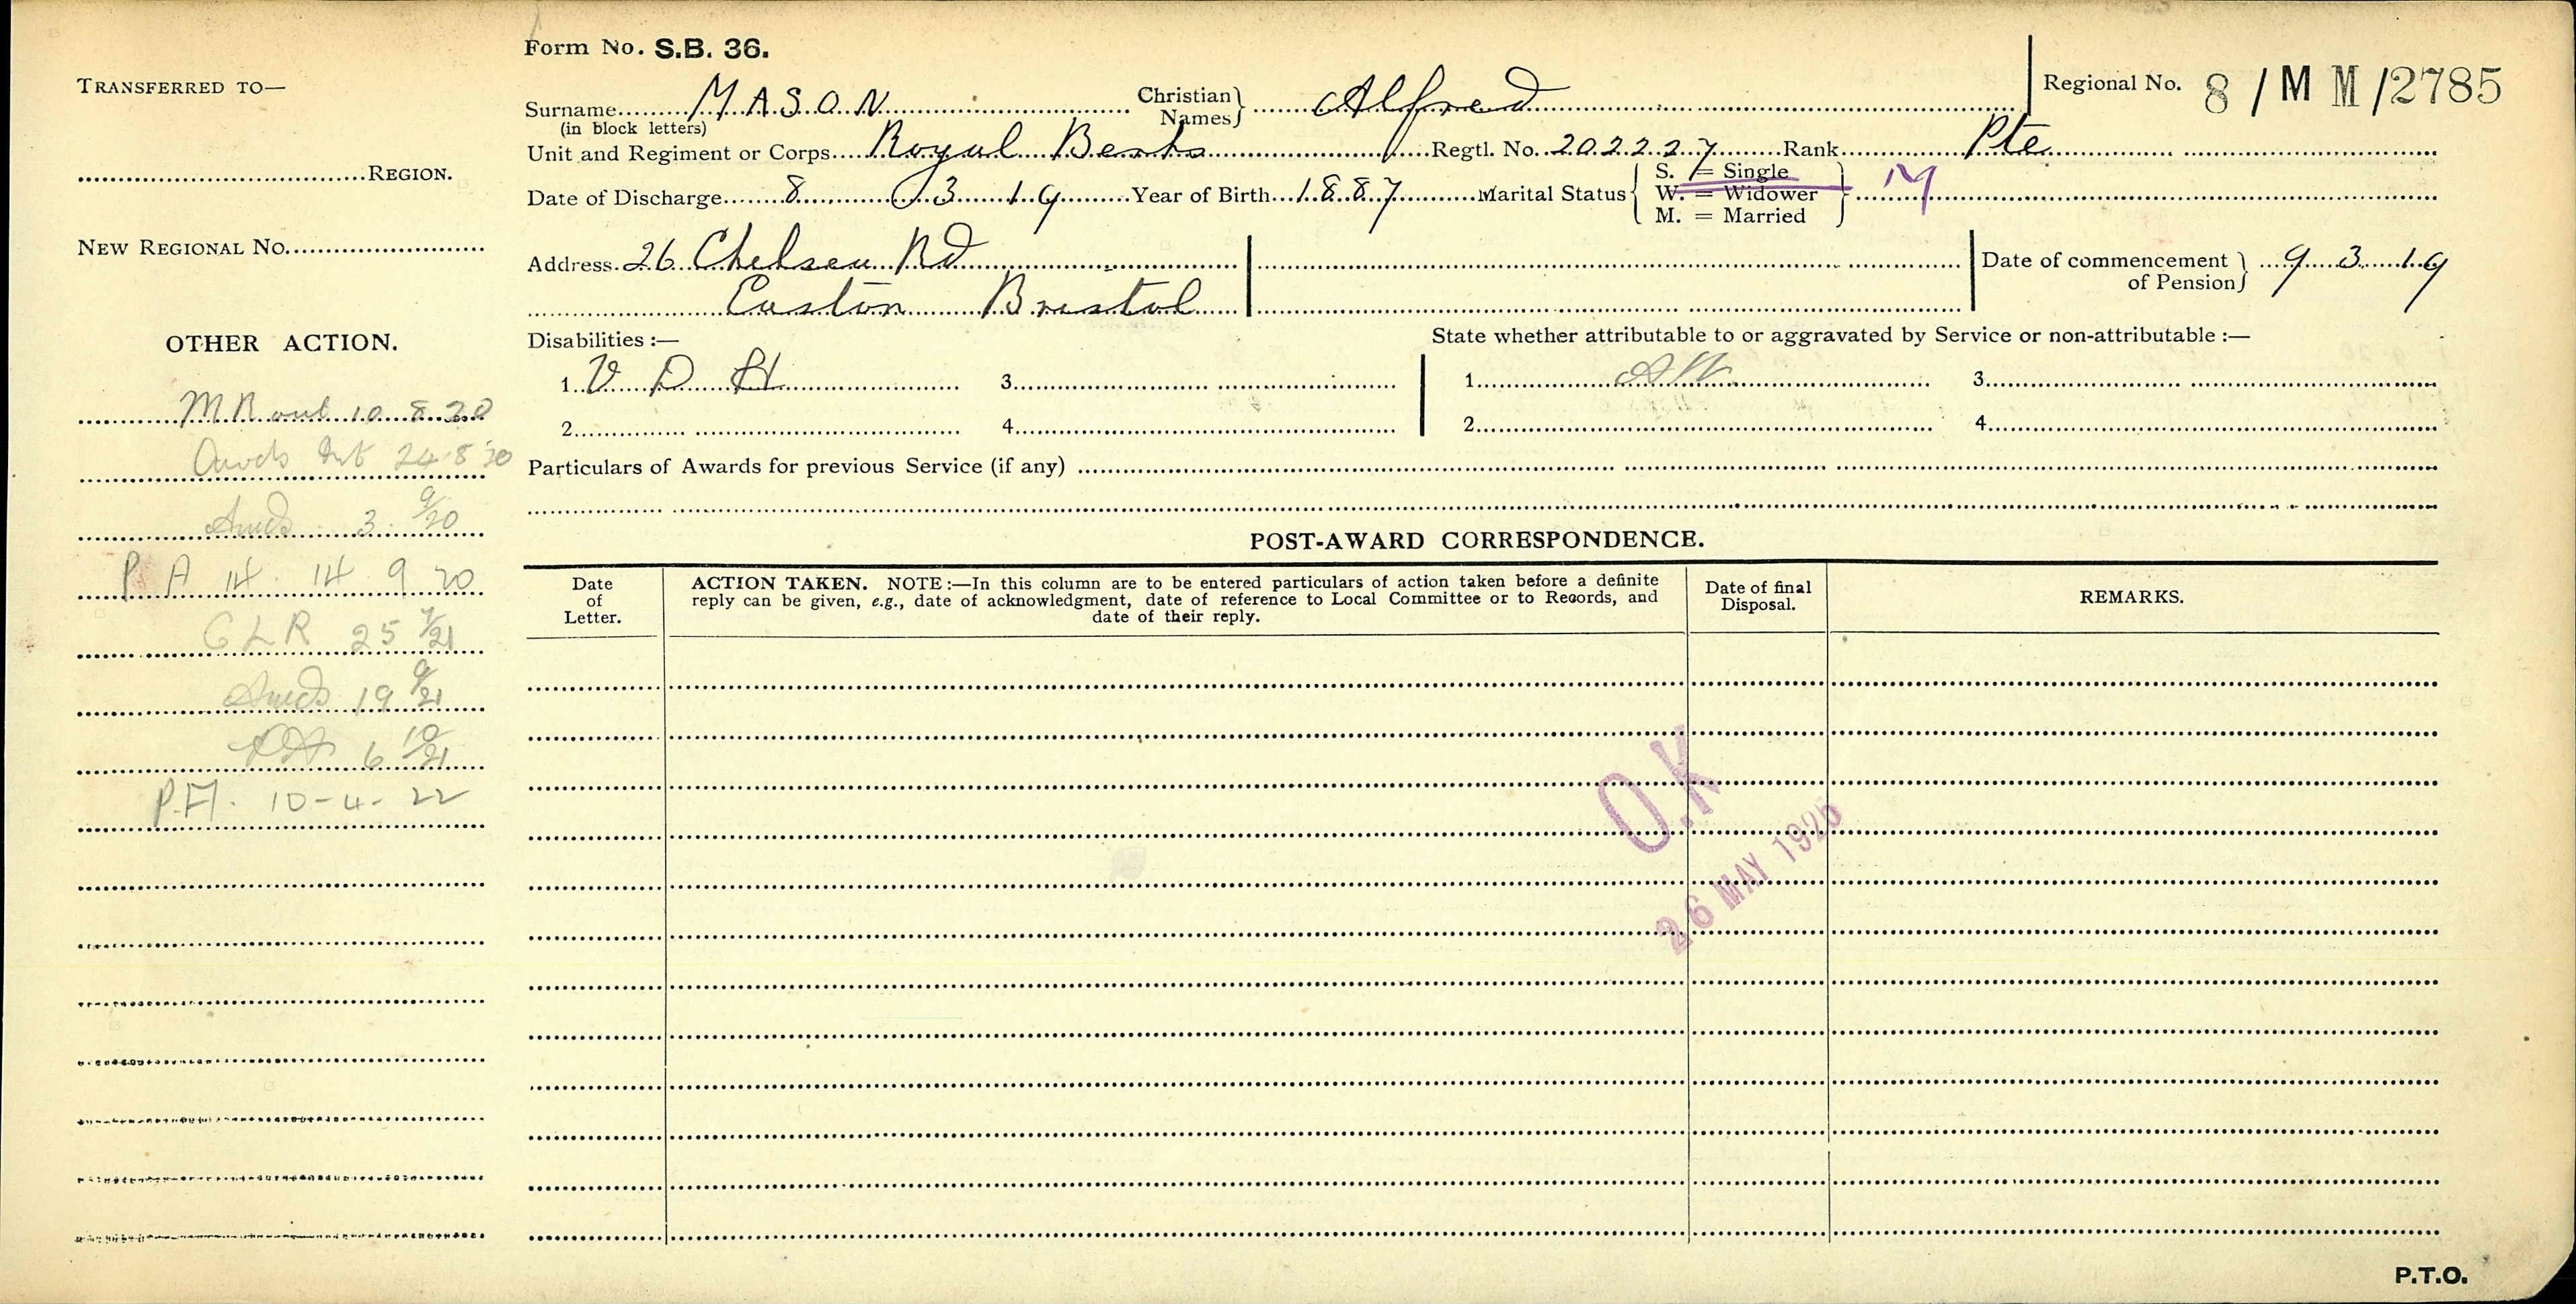 Form No. S.B. 36.
TRANSFERRED TO—
Regional No. 8 / M M / 2785
Surname MASON Christian Names Alfred
(in block letters)
Unit and Regiment or Corps Royal Berks Regtl. No. 202227 Rank Pte
REGION.
Date of Discharge 8 3 19 Year of Birth 1887 Marital Status S. = Single W. = Widower M. = Married M
NEW REGIONAL No.
Address 26 Chelsea Rd
Easton Bristol
Date of commencement of Pension 9 3 19
OTHER ACTION.
MR out 10 8 20
24.8.20
Awds 3 9/20
P A 14 14 9 20
CLR 25 7/21
Awds 19 9/21
6 10/21
P.A. 10-4-22
Disabilities :—
1. V D H 3.
2. 4.
State whether attributable to or aggravated by Service or non-attributable :—
1. 3.
2. 4.
Particulars of Awards for previous Service (if any)
POST-AWARD CORRESPONDENCE.
Date of Letter.
ACTION TAKEN. NOTE :—In this column are to be entered particulars of action taken before a definite
reply can be given, e.g., date of acknowledgment, date of reference to Local Committee or to Records, and
date of their reply.
Date of final Disposal.
REMARKS.
O.K
26 MAY 1926
P.T.O.